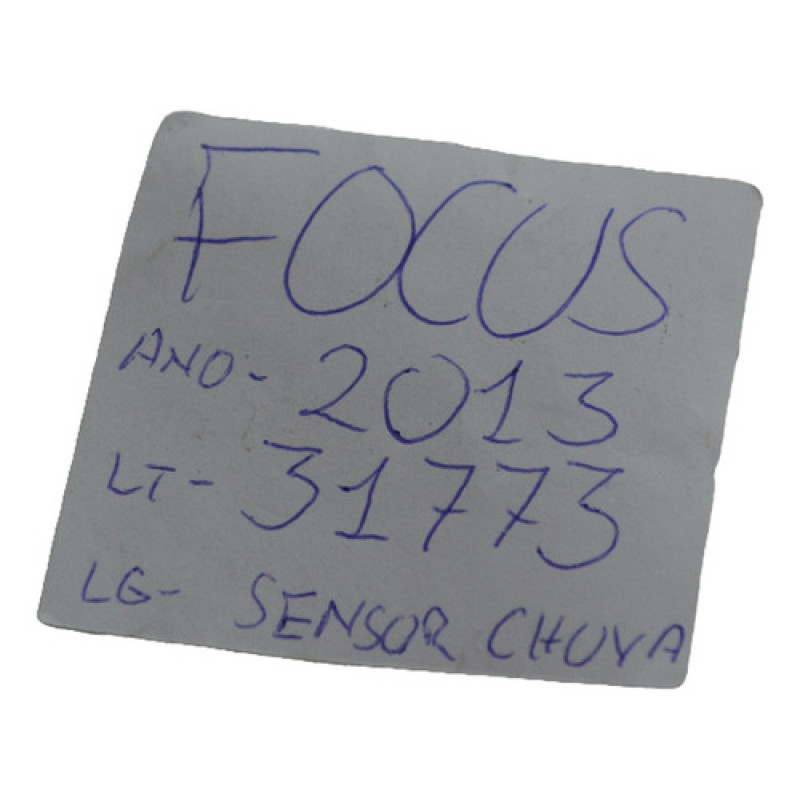 FOCUS
ANO- 2013
LT- 31773
LG- SENSOR CHUVA